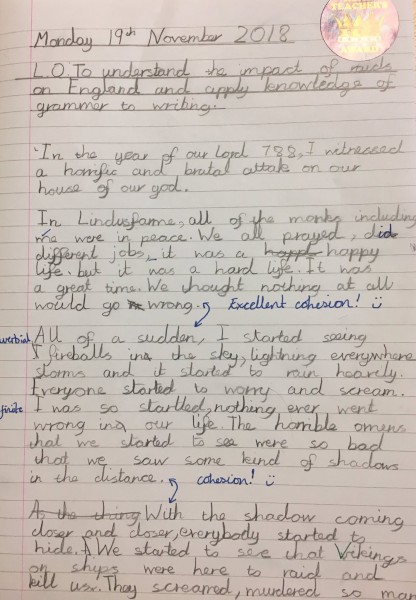 TEACHER'S
AWARD
Monday 19th November 2018
L.O. To understand the impact of raids
on England and apply knowledge of
grammer to writing.
'In the year of our Lord 788, I witnessed
a horrific and brutal attak on our
house of our god.
In Lindusfarne, all of the monks including
me were in peace. We all prayed, did
different jobs, it was a happy
life. but it was a hard life. It was
a great time. We thought nothing at all
would go wrong. Excellent cohesion!
verbial All of a sudden, I started seeing
fireballs in the sky, lightning everywhere
storms and it started to rain heavily.
Everyone started to worry and scream.
finite I was so startled, nothing ever went
wrong in our life. The horrible omens
that we started to see were so bad
that we saw some kind of shadows
in the distance. cohesion!
As the thing With the shadow coming
closer and closer, everybody started to
hide. We started to see that Vikings
on ships were here to raid and
kill us. They screamed, murdered so man